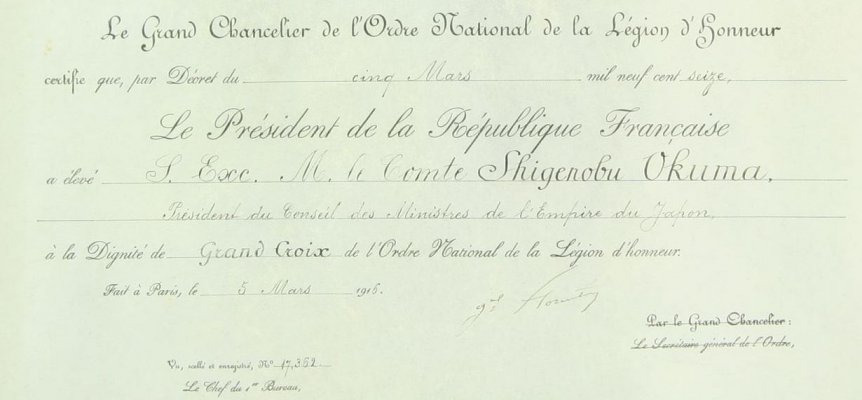 Le Grand Chancelier de l'Ordre National de la Légion d'Honneur
certifie que, par Décret du cinq Mars mil neuf cent seize,
Le Président de la République Française
a élevé S. Exc. M. le Comte Shigenobu Okuma,
Président du Conseil des Ministres de l'Empire du Japon,
à la Dignité de Grand Croix de l'Ordre National de la Légion d'honneur.
Fait à Paris, le 5 Mars 1916.
gal
Par le Grand Chancelier :
Le Secrétaire général de l'Ordre,
Vu, scellé et enregistré, No 47,362
Le Chef du 1er Bureau,